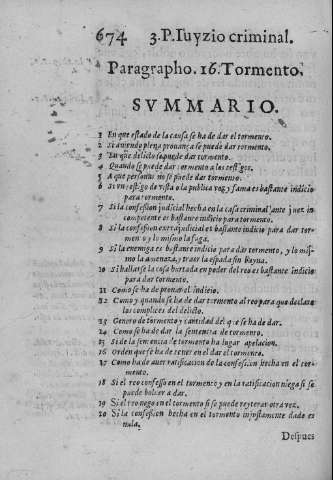 674 3.P. Iuyzio criminal.
Paragrapho. 16. Tormento.
SVMMARIO.
1 En que estado de la causa se ha de dar el tormento.
2 Si auiendo plena prouança se puede dar tormento.
3 En que delicto se puede dar tormento.
4 Quando se puede dar tormento a los testigos.
5 A que personas no se puede dar tormento.
6 Si vn testigo de vista o la publica voz y fama es bastante indicio
para tormento.
7 Si la confession judicial hecha en la causa criminal ante juez in-
competente es bastante indicio para tormento.
8 Si la confission extrajudicial es bastante indicio para dar tor-
mento y lo mismo la fuga.
9 Si la enemiga es bastante indicio para dar tormento, y lo mis-
mo la amenaza, y traer la espada sin bayna.
10 Si hallarse la cosa hurtada en poder del reo es bastante indicio
para dar tormento.
11 Como se ha de prouar el indicio.
12 Como y quando se ha de dar tormento al reo para que declare
los complices del delicto.
13 Genero de tormento y cantidad del que se ha de dar.
14 Como se ha de dar la sentencia de tormento.
15 Si de la sentencia de tormento ha lugar apelacion.
16 Orden que se ha de tener en el dar el tormento.
17 Como ha de auer ratificacion de la confession hecha en el tor-
mento.
18 Si el reo confesso en el tormento y en la ratificacion niega si se
puede boluer a dar.
19 Si el reo nego en el tormento si se puede reyterar otra vez.
20 Si la confession hecha en el tormento injustamente dado es
nula.
Despues